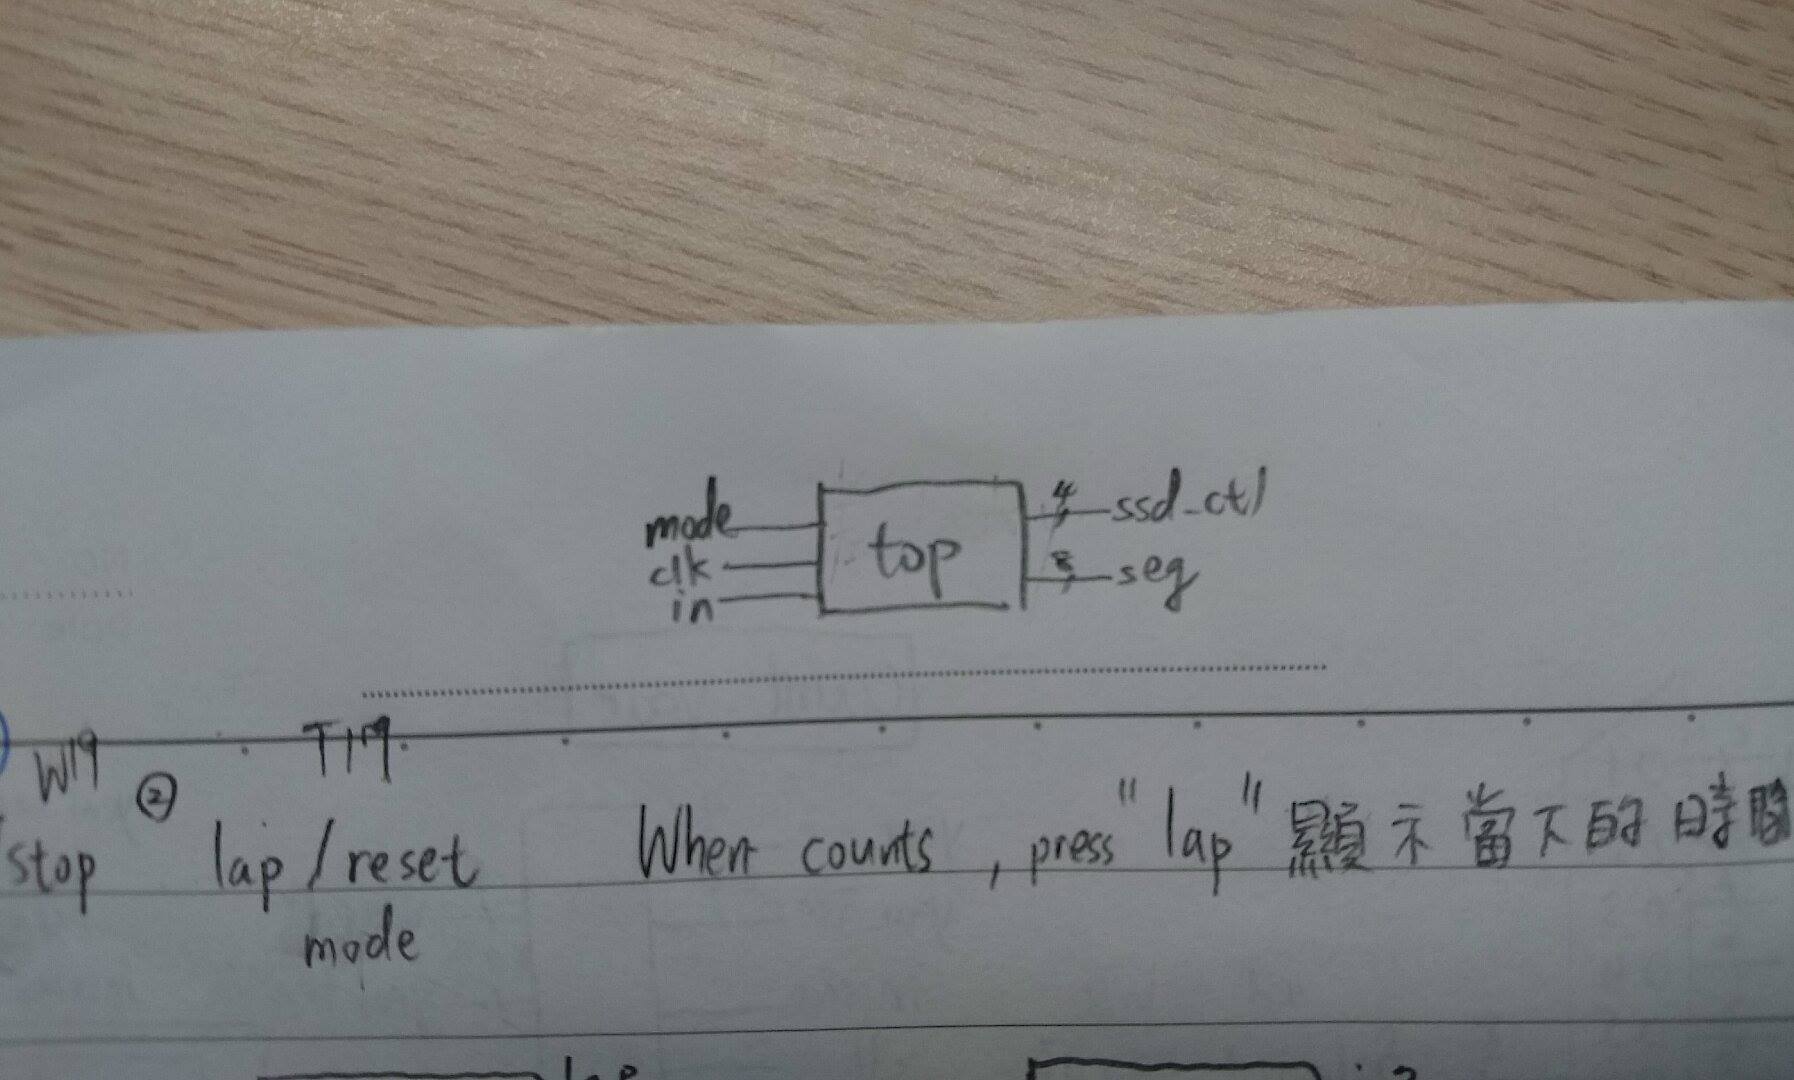 mode
clk
in
top
4
ssd_ctl
8
seg
W19 T17
② 
stop lap/reset When counts, press "lap" 顯示當下的時間
mode